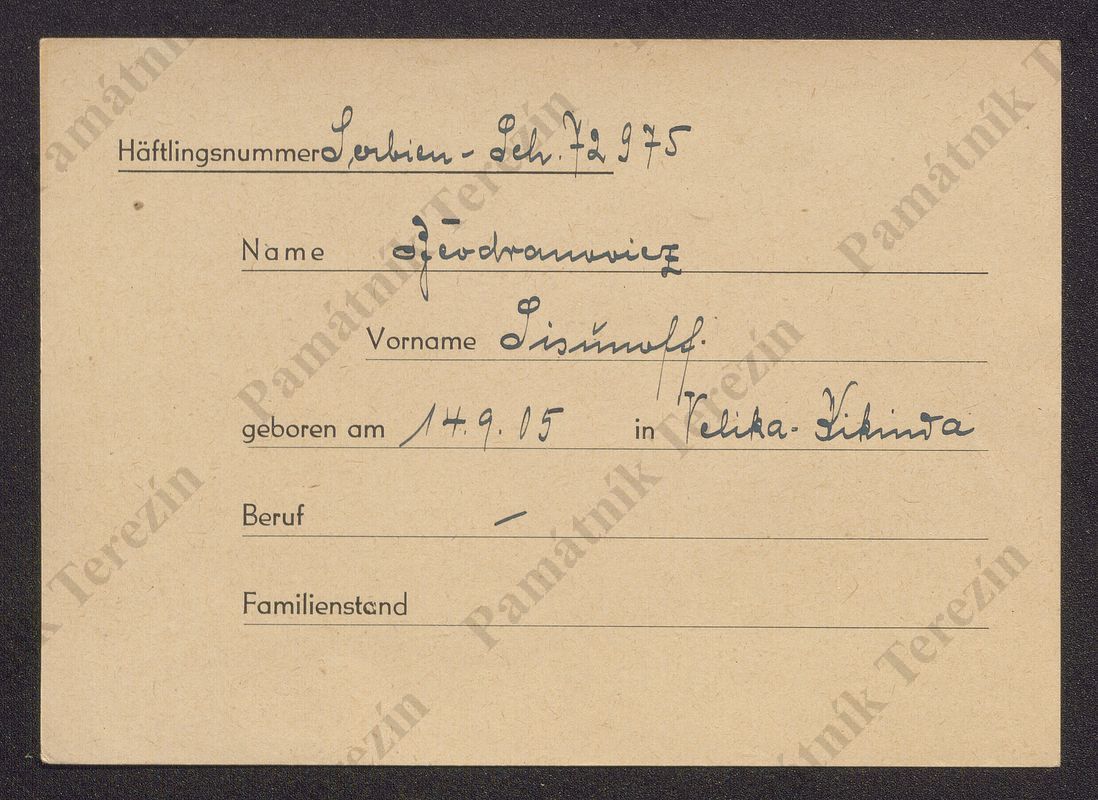 Häftlingsnummer Serbien - Sch. 72 975
Name
Vorname Sisŭnoff.
geboren am 14.9.05 in Velika - Kikinda
Beruf -
Familienstand
Památník Terezín